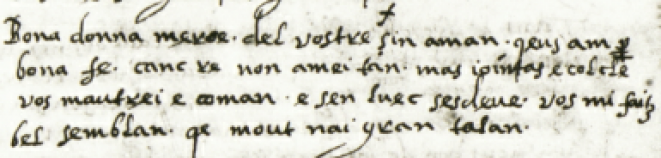 Bona donna merce. del vostre fin aman. qeus am p
bona fe. canc re non amei tan. mas iointas e col cle
vos mautrei e coman. e sen luec sesdeve. vos mi faitz
bel semblan. qe mout nai gran talan.